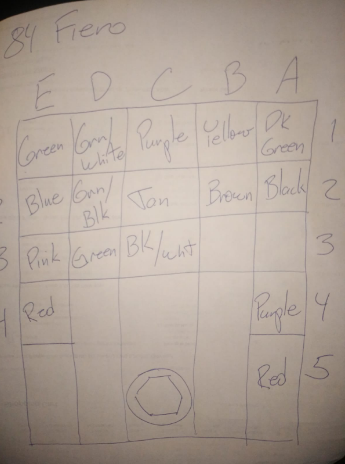 84 Fiero
E D C B A
Green Grn/white Purple Yellow DK Green 1
2 Blue Grn/Blk Tan Brown Black 2
3 Pink Green BK/whit 3
4 Red Purple 4
Red 5